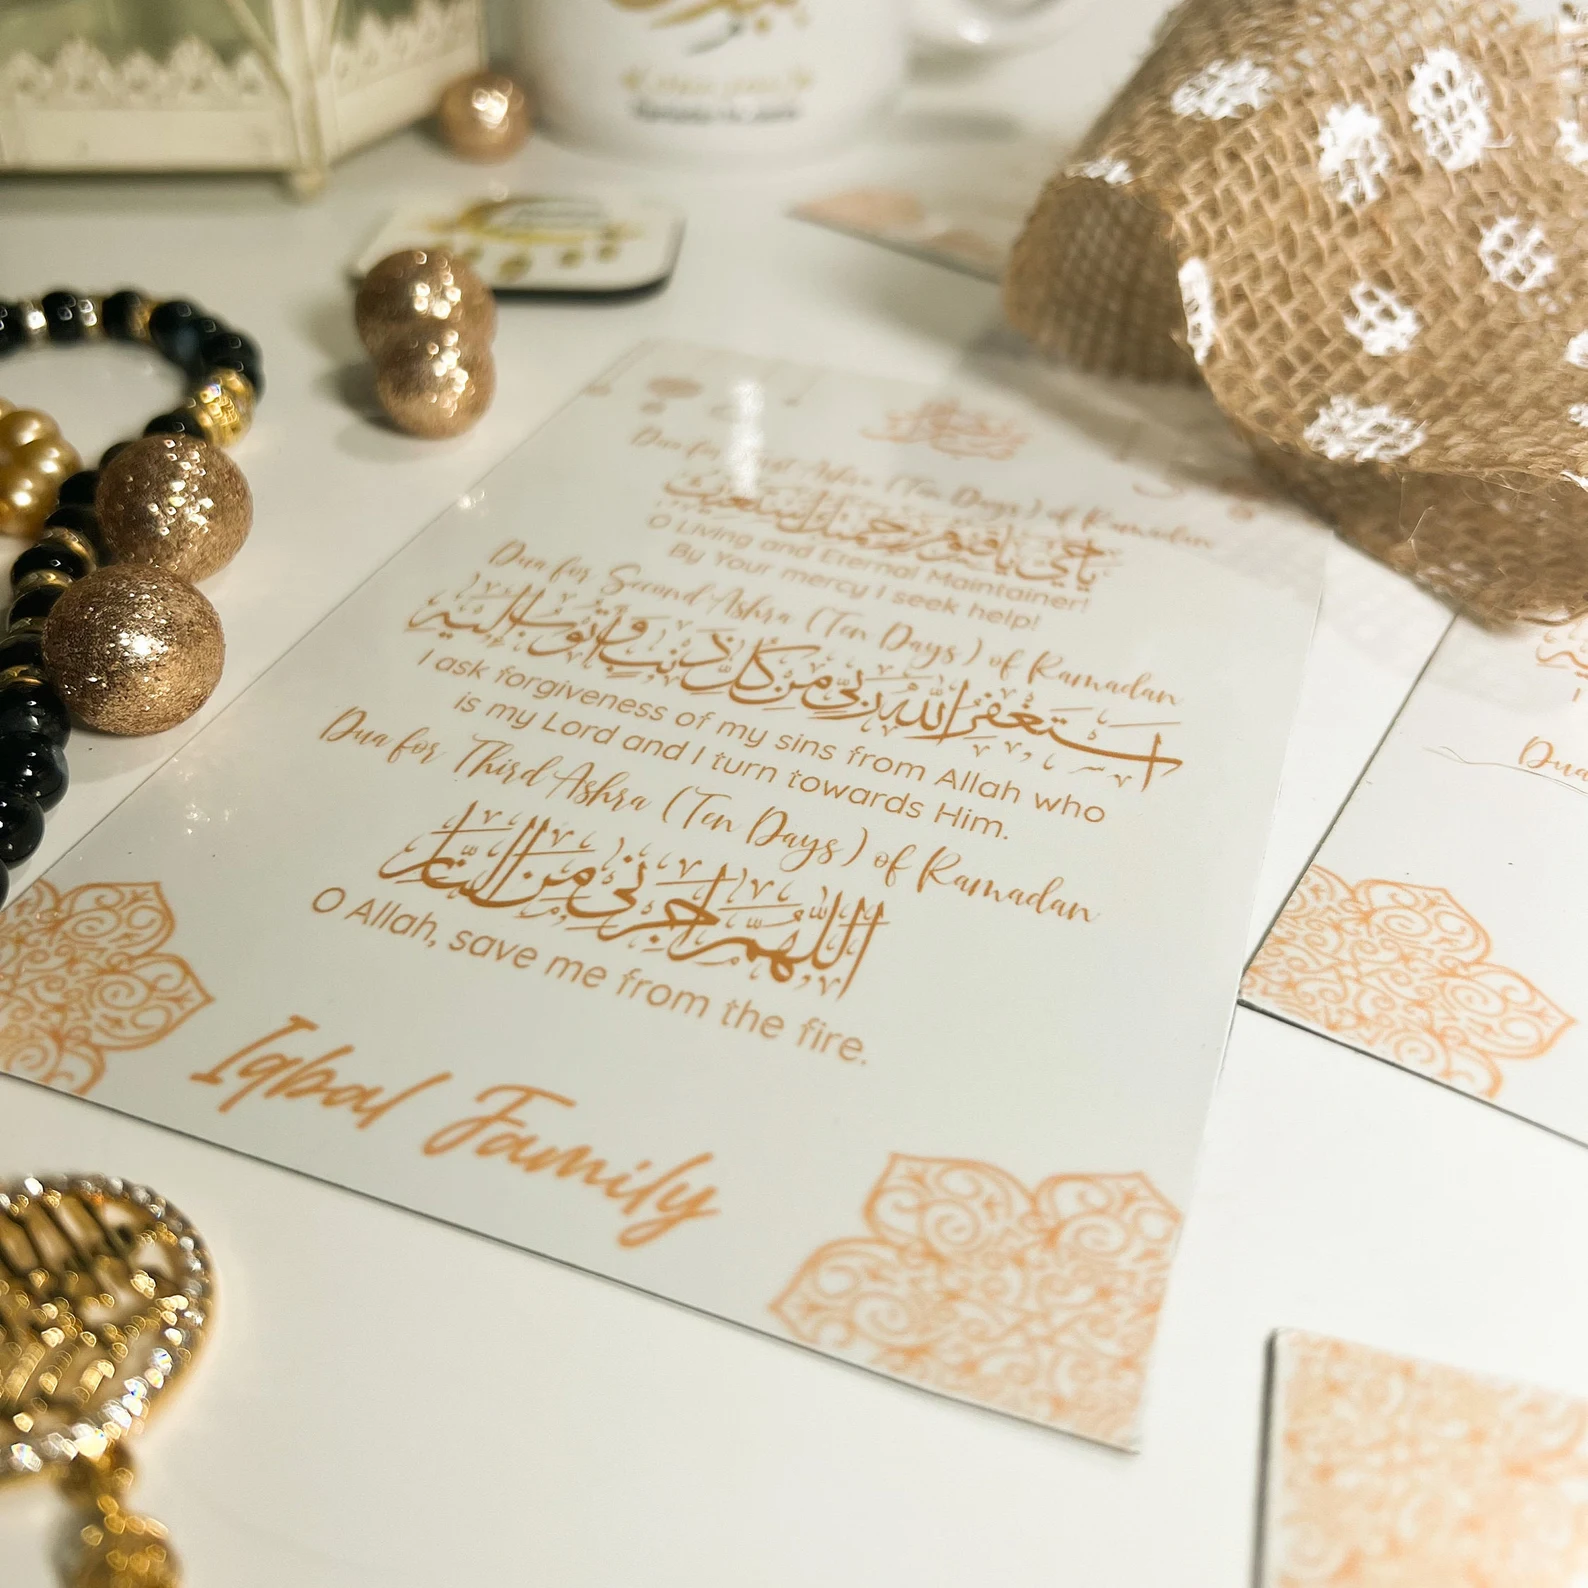 Dua for First Ashra (Ten Days) of Ramadan
يا حي يا قيوم برحمتك استغيث
O Living and Eternal Maintainer!
By Your mercy I seek help!
Dua for Second Ashra (Ten Days) of Ramadan
اَسْتَغْفِرُ اللهَ رَبِّي مِنْ كُلِّ ذَنْبٍ وَّاَتُوْبُ اِلَيْهِ
I ask forgiveness of my sins from Allah who
is my Lord and I turn towards Him.
Dua for Third Ashra (Ten Days) of Ramadan
اَللّٰهُمَّ اَجِرْنِي مِنَ النَّارِ
O Allah, save me from the fire.
Iqbal Family
Dua